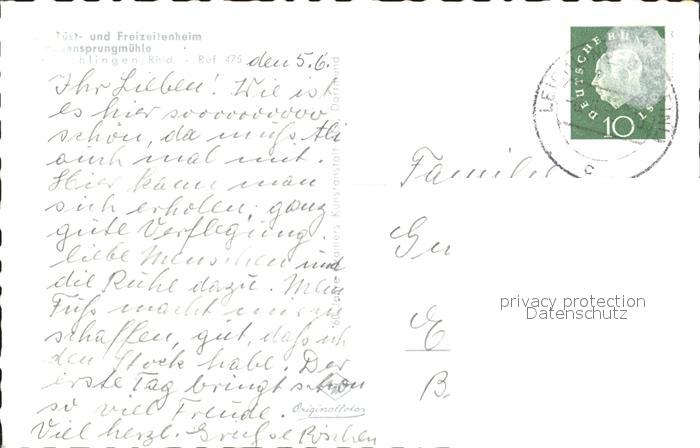 Rüst- und Freizeitenheim
sensprungmühle
chlingen, Rhld. - Ruf 475
den 5.6.
Ihr Lieben! Wie ist
es hier soooooooooo
schön, da muß Ali
auch mal mit.
Hier kann man
sich erholen, ganz
gute Verflegung
liebe Menschen und
die Ruhe dazu. Mein
Fuß macht mir zu
schaffen, gut, daß ich
den Stock habe. Der
erste Tag bringt schon
so viel Freude.
Viel herzl. Grüße Röschen
Originalfoto
Kunstanstalt Dortmund
DEUTSCHE BUNDESPOST
10
LEIC
Familie
Gu
E
B
privacy protection
Datenschutz